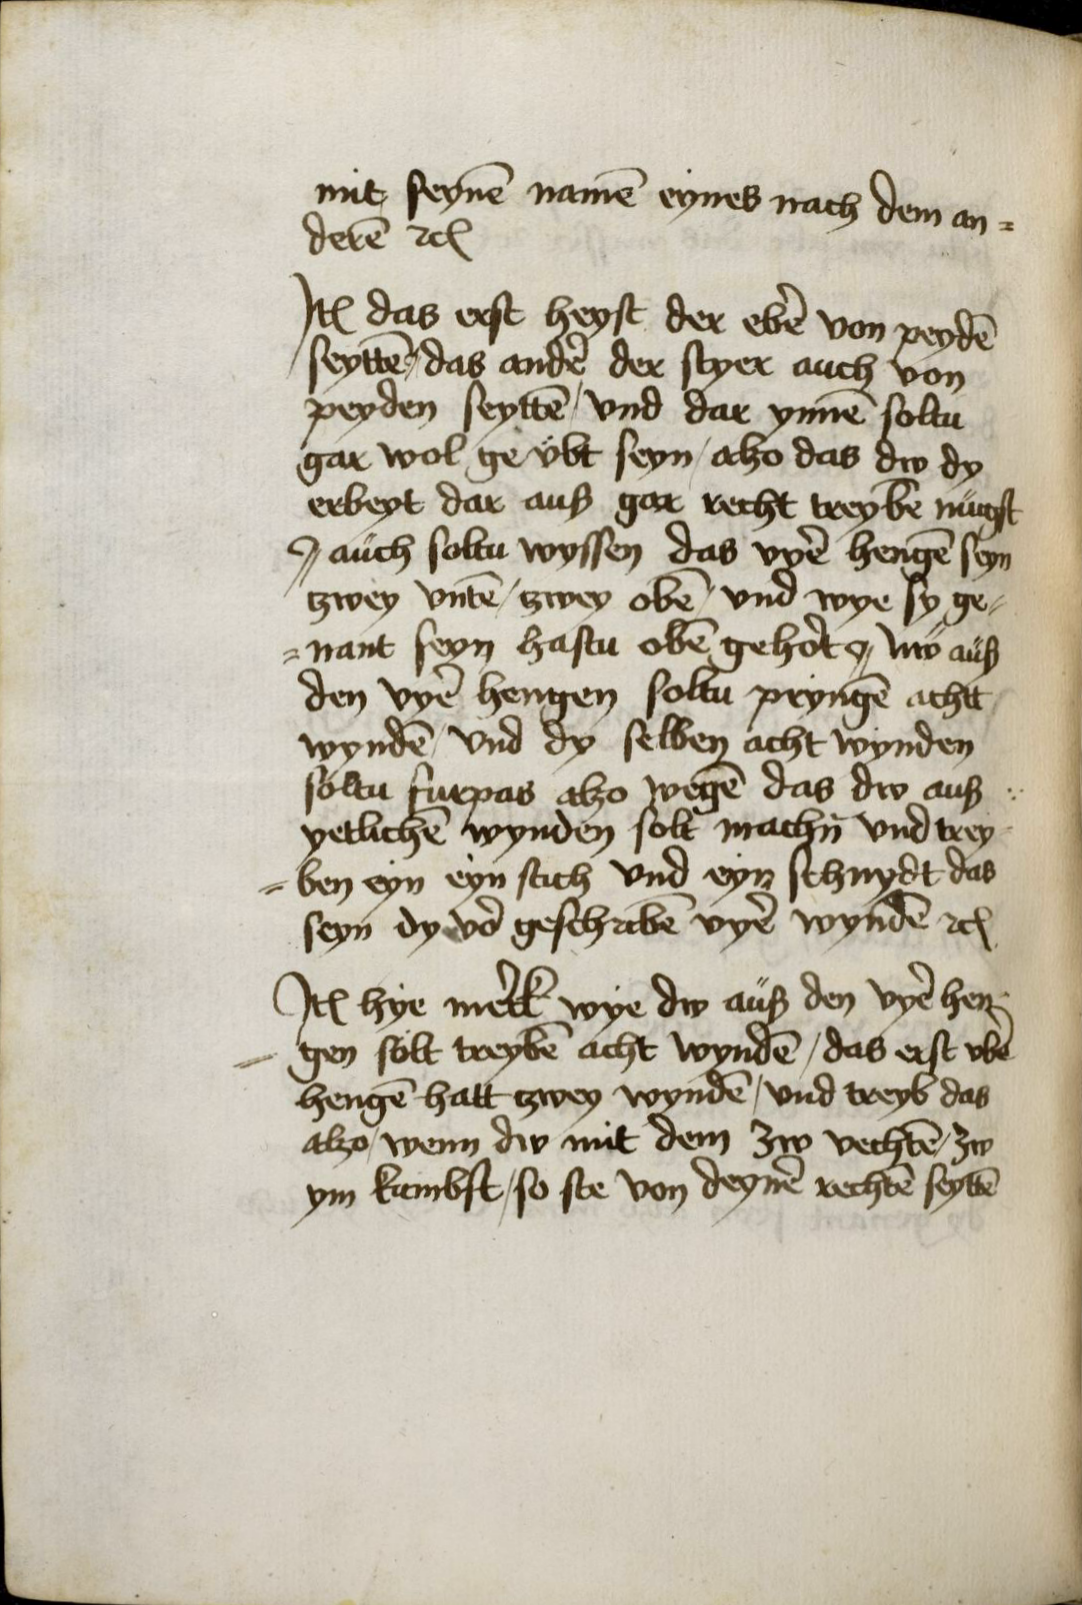 mit seynē namē eynes nach dem an=
derē ⁊cꝭ
Itꝭ das erst heyst der ebē von peydē
seyttē / das andē der styer auch von
peyden seyttē / vnd dar ynnē soltu
gar wol ge v̈bt seyn / alzo das dw dy
erbeyt dar auß gar recht treybē mügst
auch soltu wyssen das vyē hengē seyn
tzwey vntē / tzwey obē / vnd wye sy ge=
=nant seyn hastu obē gehőt nẅ auß
den vyē hengen soltu pryngē achtt
wyndē / vnd dy selben acht wynden
soltu furpas alzo wegē das dw auß
yetlichē wynden solt machn̄ vnd trey
=ben eyn eyn stich vnd eyn schnydt das
seyn dy vő geschribē vyē wyndē ⁊cꝭ
Itꝭ hye merck wye dw auß den vyē hen
gen solt treybē acht wyndē / das erst vbē
hengē hatt tzwey wyndē / vnd treyb das
alzo / wenn dw mit dem zw vechtē / zw
ym kumbst / so ste von deynē rechtē seyttē